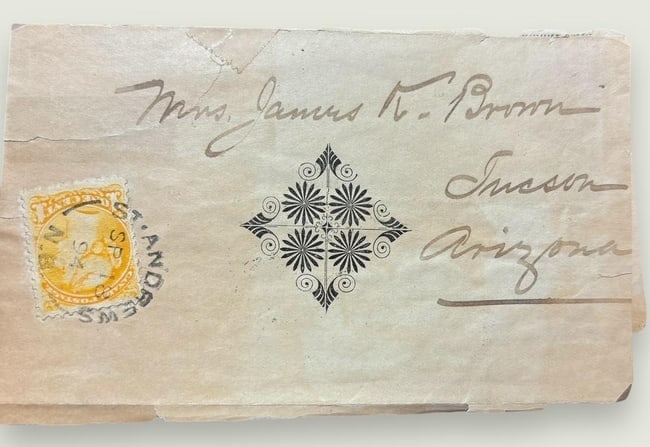 Mrs. James K. Brown
Tucson
Arizona
ST. ANDREWS
SP